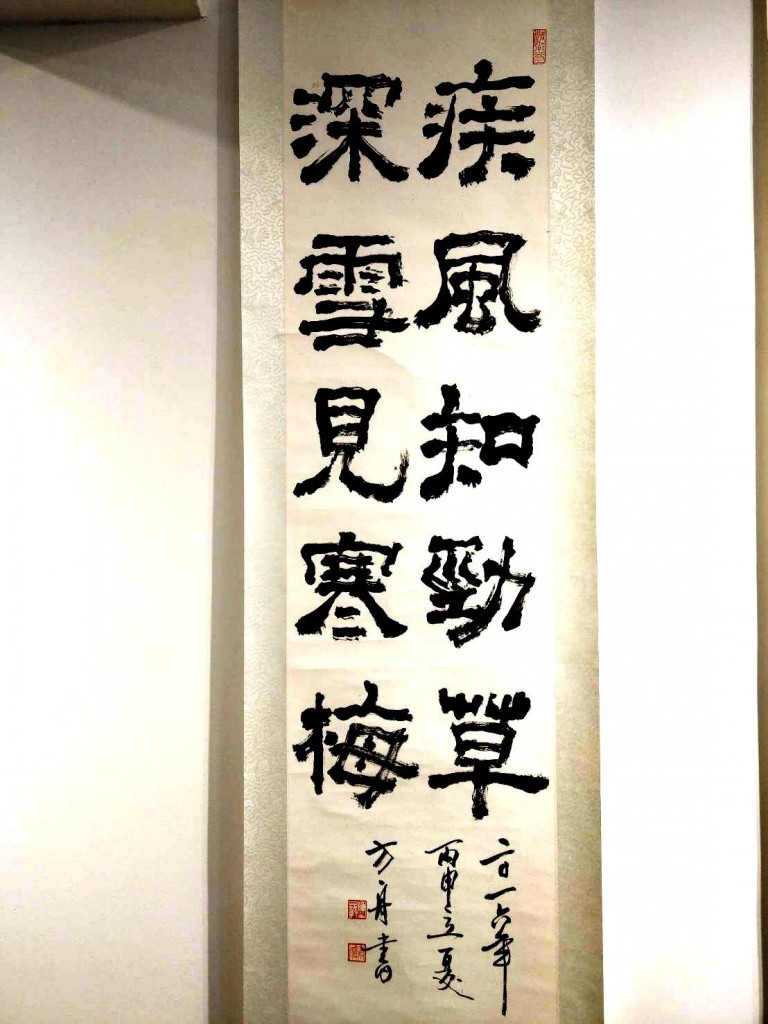 疾風知勁草
深雪見寒梅
二〇一六年
丙申立夏
方舟書